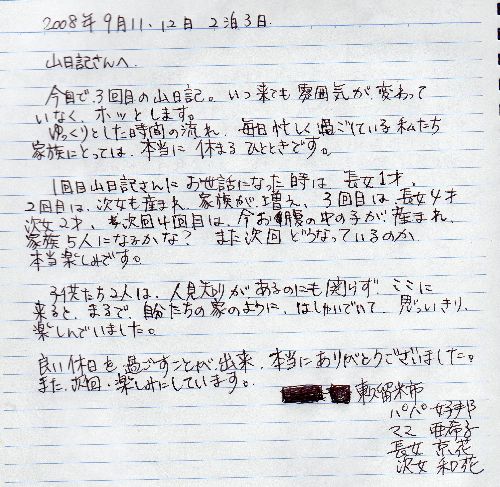 2008年9月11.12日 2泊3日.
山日記さんへ.
今回で、3回目の山日記。いつ来ても 雰囲気が、変わって
いなく、ホッとします。
ゆっくりとした時間の流れ、毎日忙しく過ごている私たち
家族にとっては、本当に休まるひとときです。
1回目山日記さんにお世話になった時は、長女1才、
2回目は、次女も産まれ 家族が、増え、3回目は、長女4才
次女2才、次回4回目は、今お腹の中の子が産まれ、
家族5人になるかな? また次回どうなっているのか
本当楽しみです。
子供たち2人は、人見知りがあるのにも関らず、ここに
来ると、まるで、自分たちの家のように、はしゃいでいて、思いっきり、
楽しんでいました。
良い休日を過ごすことが出来、本当にありがとうございました。
また、次回・楽しみにしています。
東久留米市
パパ 好邦
ママ 亜希子
長女 京花
次女 和花